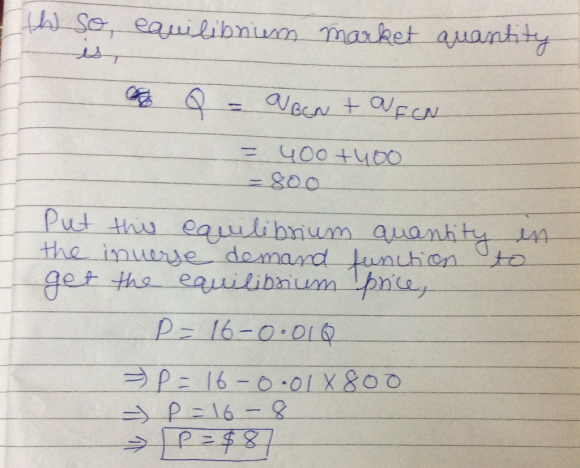 (h) So, equilibrium market quantity
is,
Q = qBCN + qFCN
= 400+400
= 800
Put this equilibrium quantity in
the inverse demand function to
get the equilibrium price,
P = 16-0.01Q
⇒ P = 16-0.01×800
⇒ P = 16 - 8
⇒ P = $8